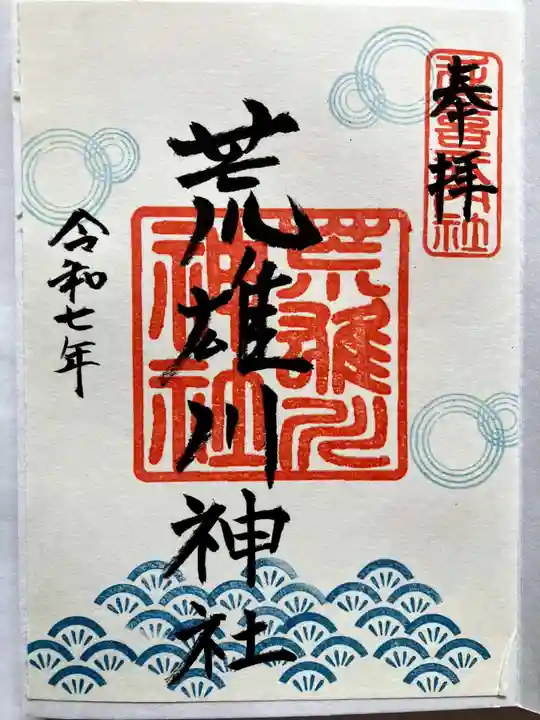 奉拝
荒雄川神社
荒雄川
神社
令和七年